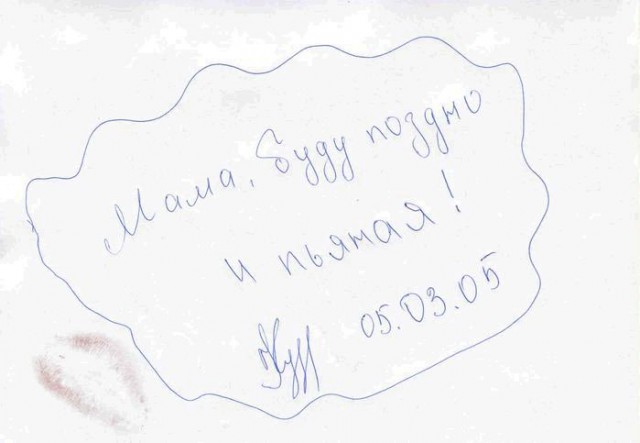 Мама, буду поздно
и пьяная!
05.03.05